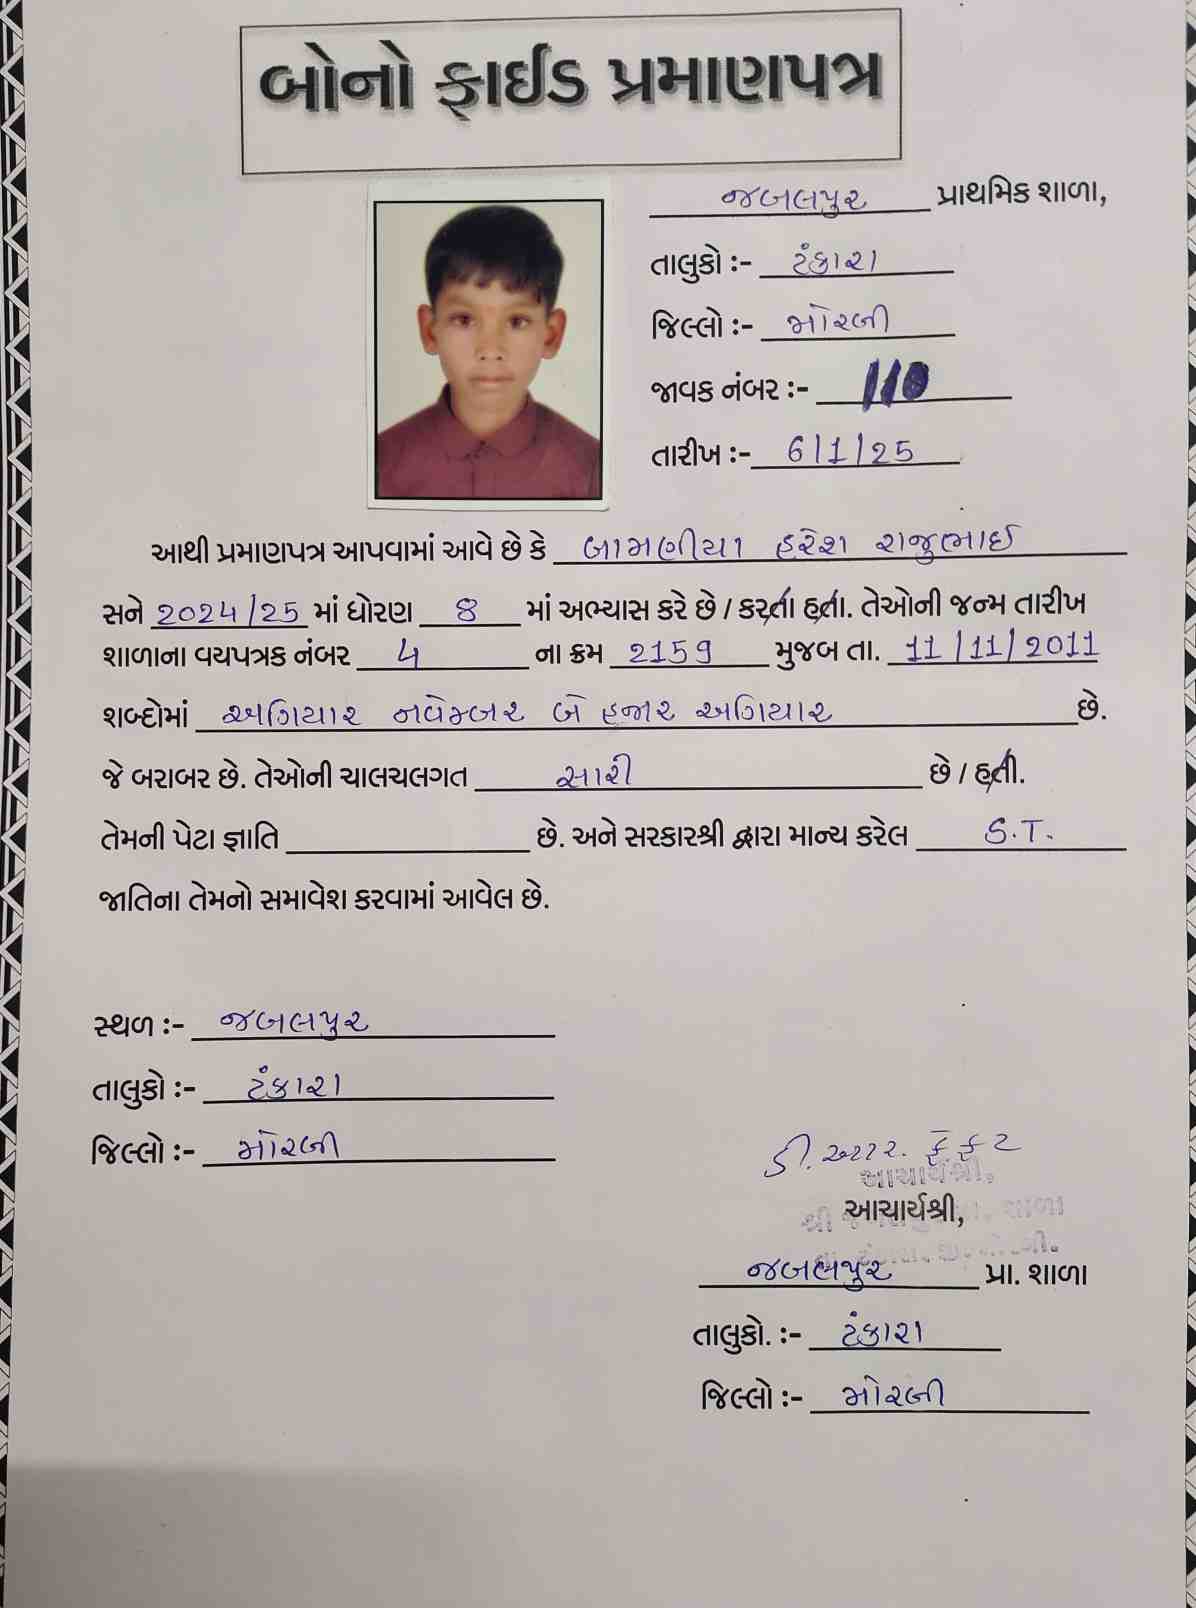 બોનો ફાઈડ પ્રમાણપત્ર
જબલપુર પ્રાથમિક શાળા,
તાલુકો :- ટંકારા
જિલ્લો :- મોરબી
જાવક નંબર :- 110
તારીખ :- 6/1/25
આથી પ્રમાણપત્ર આપવામાં આવે છે કે બામણીયા હરેશ રાજુભાઈ
સને 2024/25 માં ધોરણ 8 માં અભ્યાસ કરે છે / કરતા હતા. તેઓની જન્મ તારીખ
શાળાના વયપત્રક નંબર 4 ના ક્રમ 2159 મુજબ તા. 11/11/2011
શબ્દોમાં અગિયાર નવેમ્બર બે હજાર અગિયાર છે.
જે બરાબર છે. તેઓની ચાલચલગત સારી છે / હતી.
તેમની પેટા જ્ઞાતિ છે. અને સરકારશ્રી દ્વારા માન્ય કરેલ S.T.
જાતિના તેમનો સમાવેશ કરવામાં આવેલ છે.
સ્થળ :- જબલપુર
તાલુકો :- ટંકારા
જિલ્લો :- મોરબી
ડી. આર.
આચાર્યશ્રી,
આચાર્યશ્રી,
જબલપુર પ્રા. શાળા
તાલુકો. :- ટંકારા
જિલ્લો :- મોરબી